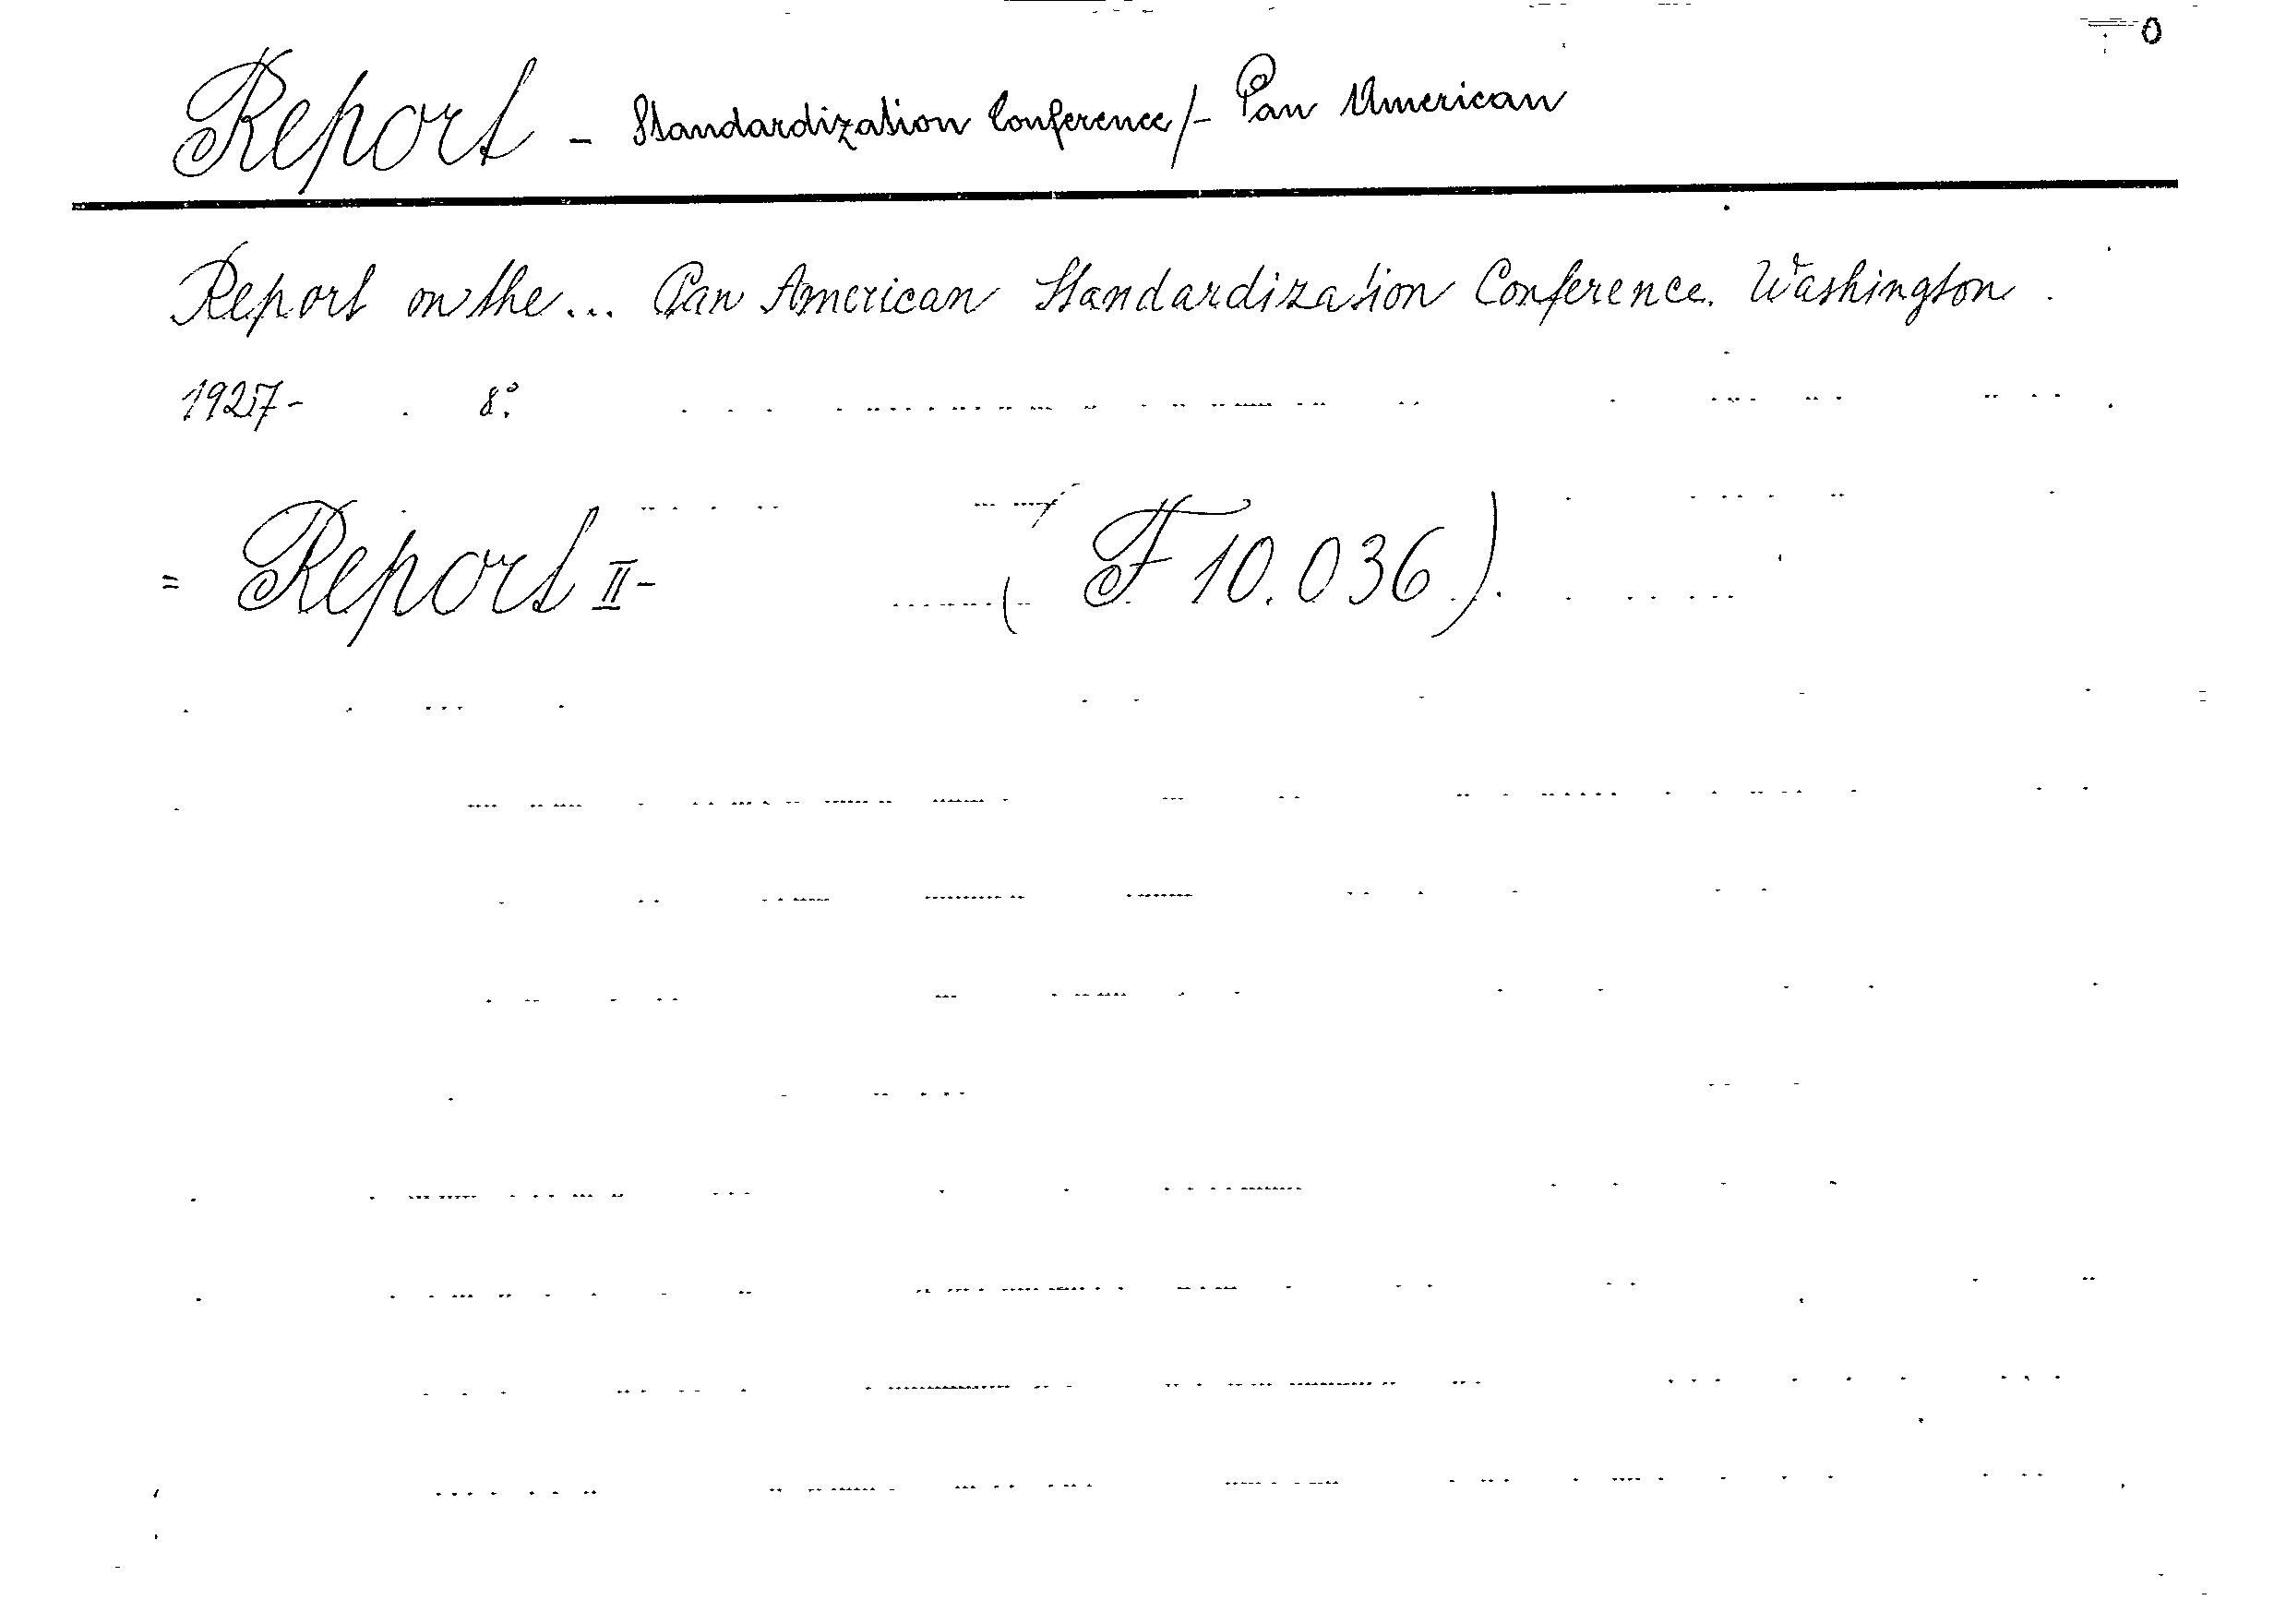 Report - Standardization Conference/- Pan American
Report on the... Pan American Standardization Conference. Washington.
1927- . 8°.
= Report II- (F 10.036).